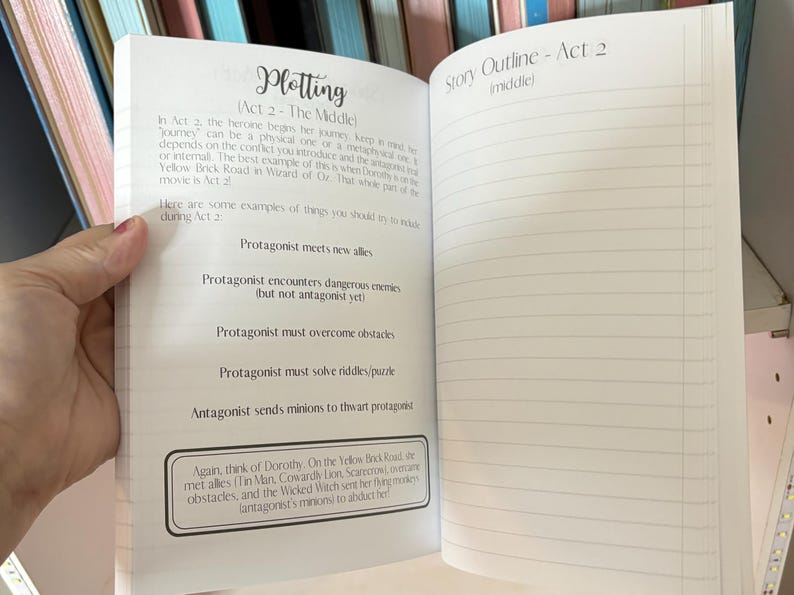 Plotting
(Act 2 - The Middle)
In Act 2, the heroine begins her journey. Keep in mind, her
"journey" can be a physical one or a metaphysical one. It
depends on the conflict you introduce and the antagonist (real
or internal). The best example of this is when Dorothy is on the
Yellow Brick Road in Wizard of Oz. That whole part of the
movie is Act 2!
Here are some examples of things you should try to include
during Act 2:
Protagonist meets new allies
Protagonist encounters dangerous enemies
(but not antagonist yet)
Protagonist must overcome obstacles
Protagonist must solve riddles/puzzle
Antagonist sends minions to thwart protagonist
Again, think of Dorothy. On the Yellow Brick Road, she
met allies (Tin Man, Cowardly Lion, Scarecrow), overcame
obstacles, and the Wicked Witch sent her flying monkeys
(antagonist's minions) to abduct her!
Story Outline - Act 2
(middle)